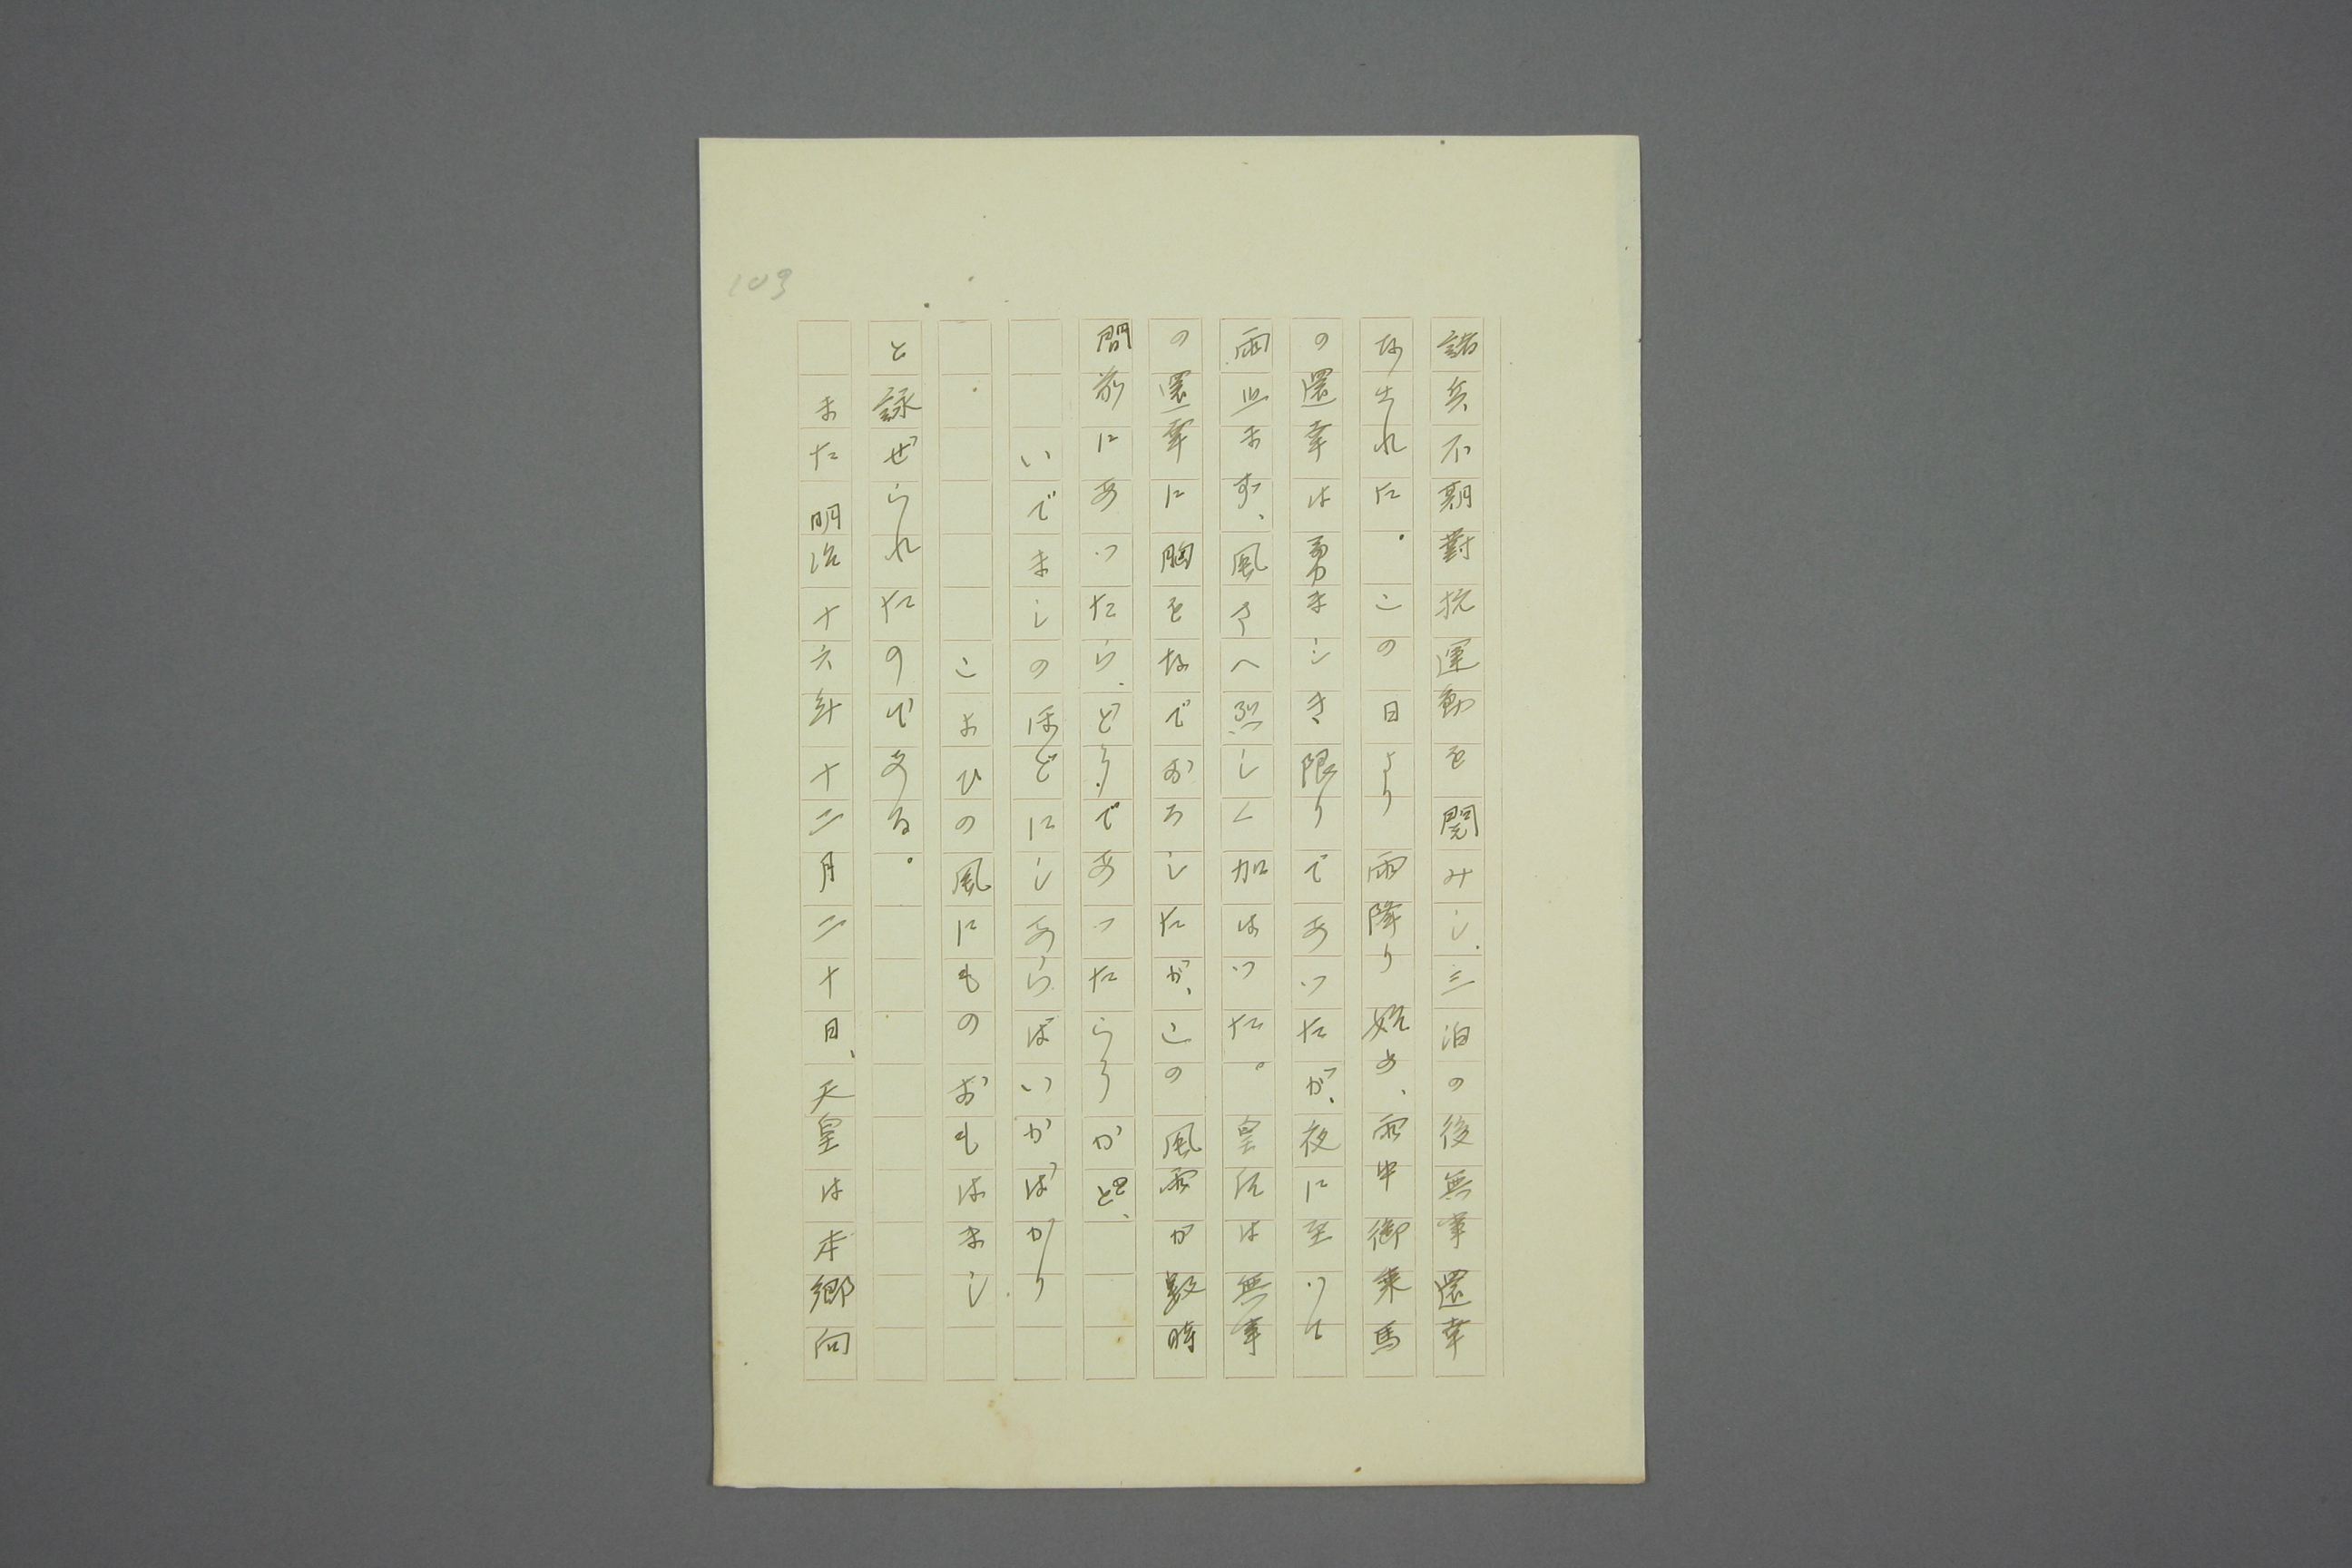 103
諸兵不期對抗運動を閲みし、三泊の後無事還幸
なされた。この日より雨降り始め、雨中御乗馬
の還幸は勇ましき限りであつたが、夜に至つて
雨止まず、風さへ烈しく加はつた。皇后は無事
の還幸に胸をなでおろしたが、この風雨が数時
間前にあつたら、どうであつたらうかと、
いでましのほどにしあらばいかばかり
こよひの風にものおもはまし
と詠ぜられたのである。
また明治十六年十二月二十日、天皇は本郷向